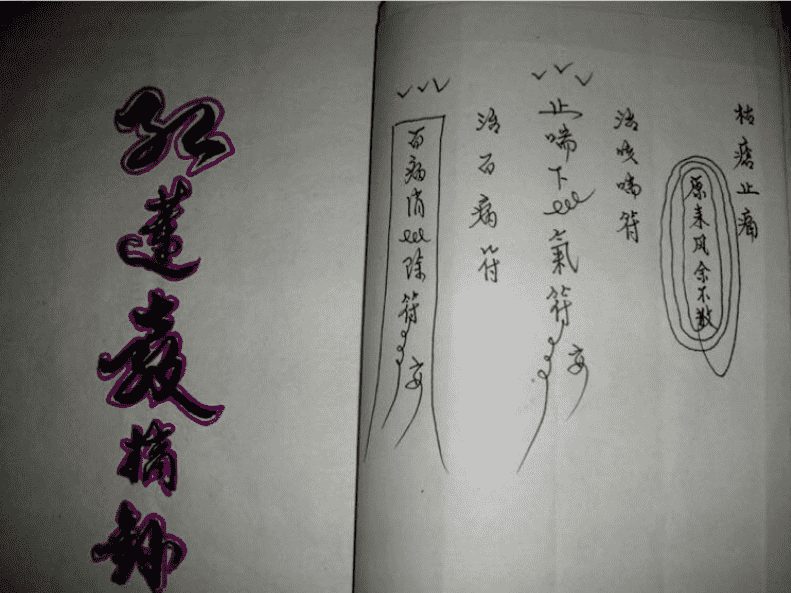 枯止痛
原来风余不散
治咳喘符
止喘下氣符安
治百病符
百病消除符安
红莲教摘抄